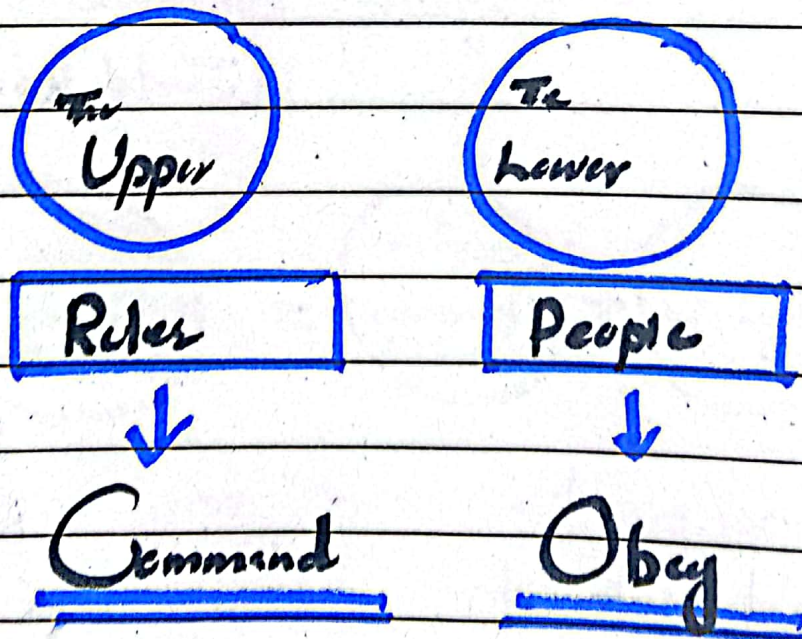 The
Upper
Ruler
Command
The
Lower
People
Obey